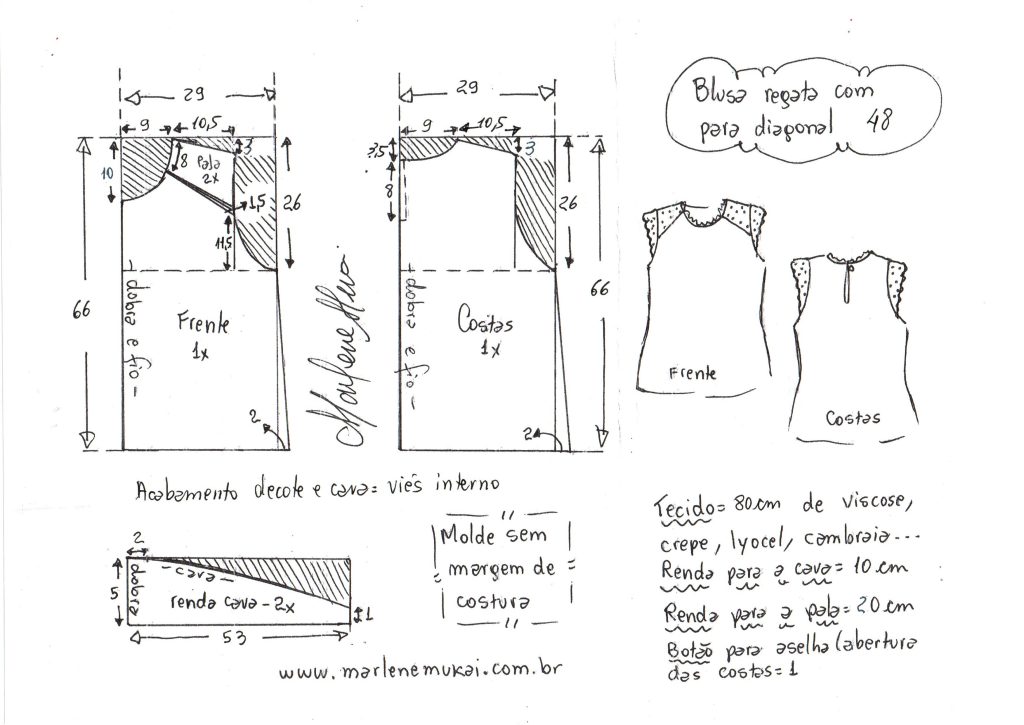 Blusa regata com
pala diagonal 48
29
9
10,5
10
8
Pala
2x
3
1,5
11,5
26
66
dobra e fio
Frente
1x
2
29
9
10,5
3,5
8
3
26
66
dobra e fio
Costas
1x
2
Marlene Mukai
Frente
Costas
Acabamento decote e cava= viés interno
2
5
dobra
cava
renda cava - 2x
1
53
Molde sem
margem de
costura
Tecido= 80cm de viscose,
crepe, lyocel, cambraia...
Renda para a cava= 10cm
Renda para a pala= 20cm
Botão para aselha (abertura
das costas=1
www.marlenemukai.com.br